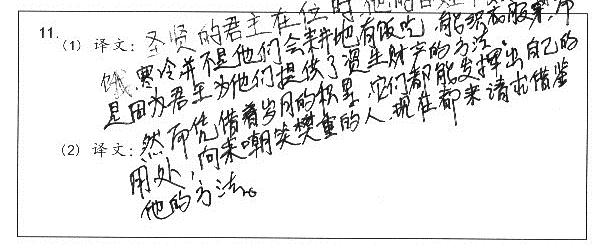 11.
(1) 译文：圣贤的君主在位时，他
饿寒冷并不是他们会耕地有饭吃，能织衣服来
是因为君主为他们提供了资生财产的方法
(2) 译文：然而凭借着岁月的积累，它们都能发挥出自己的
用处，向来嘲笑樊重的人现在都来请求借鉴
他的方法。